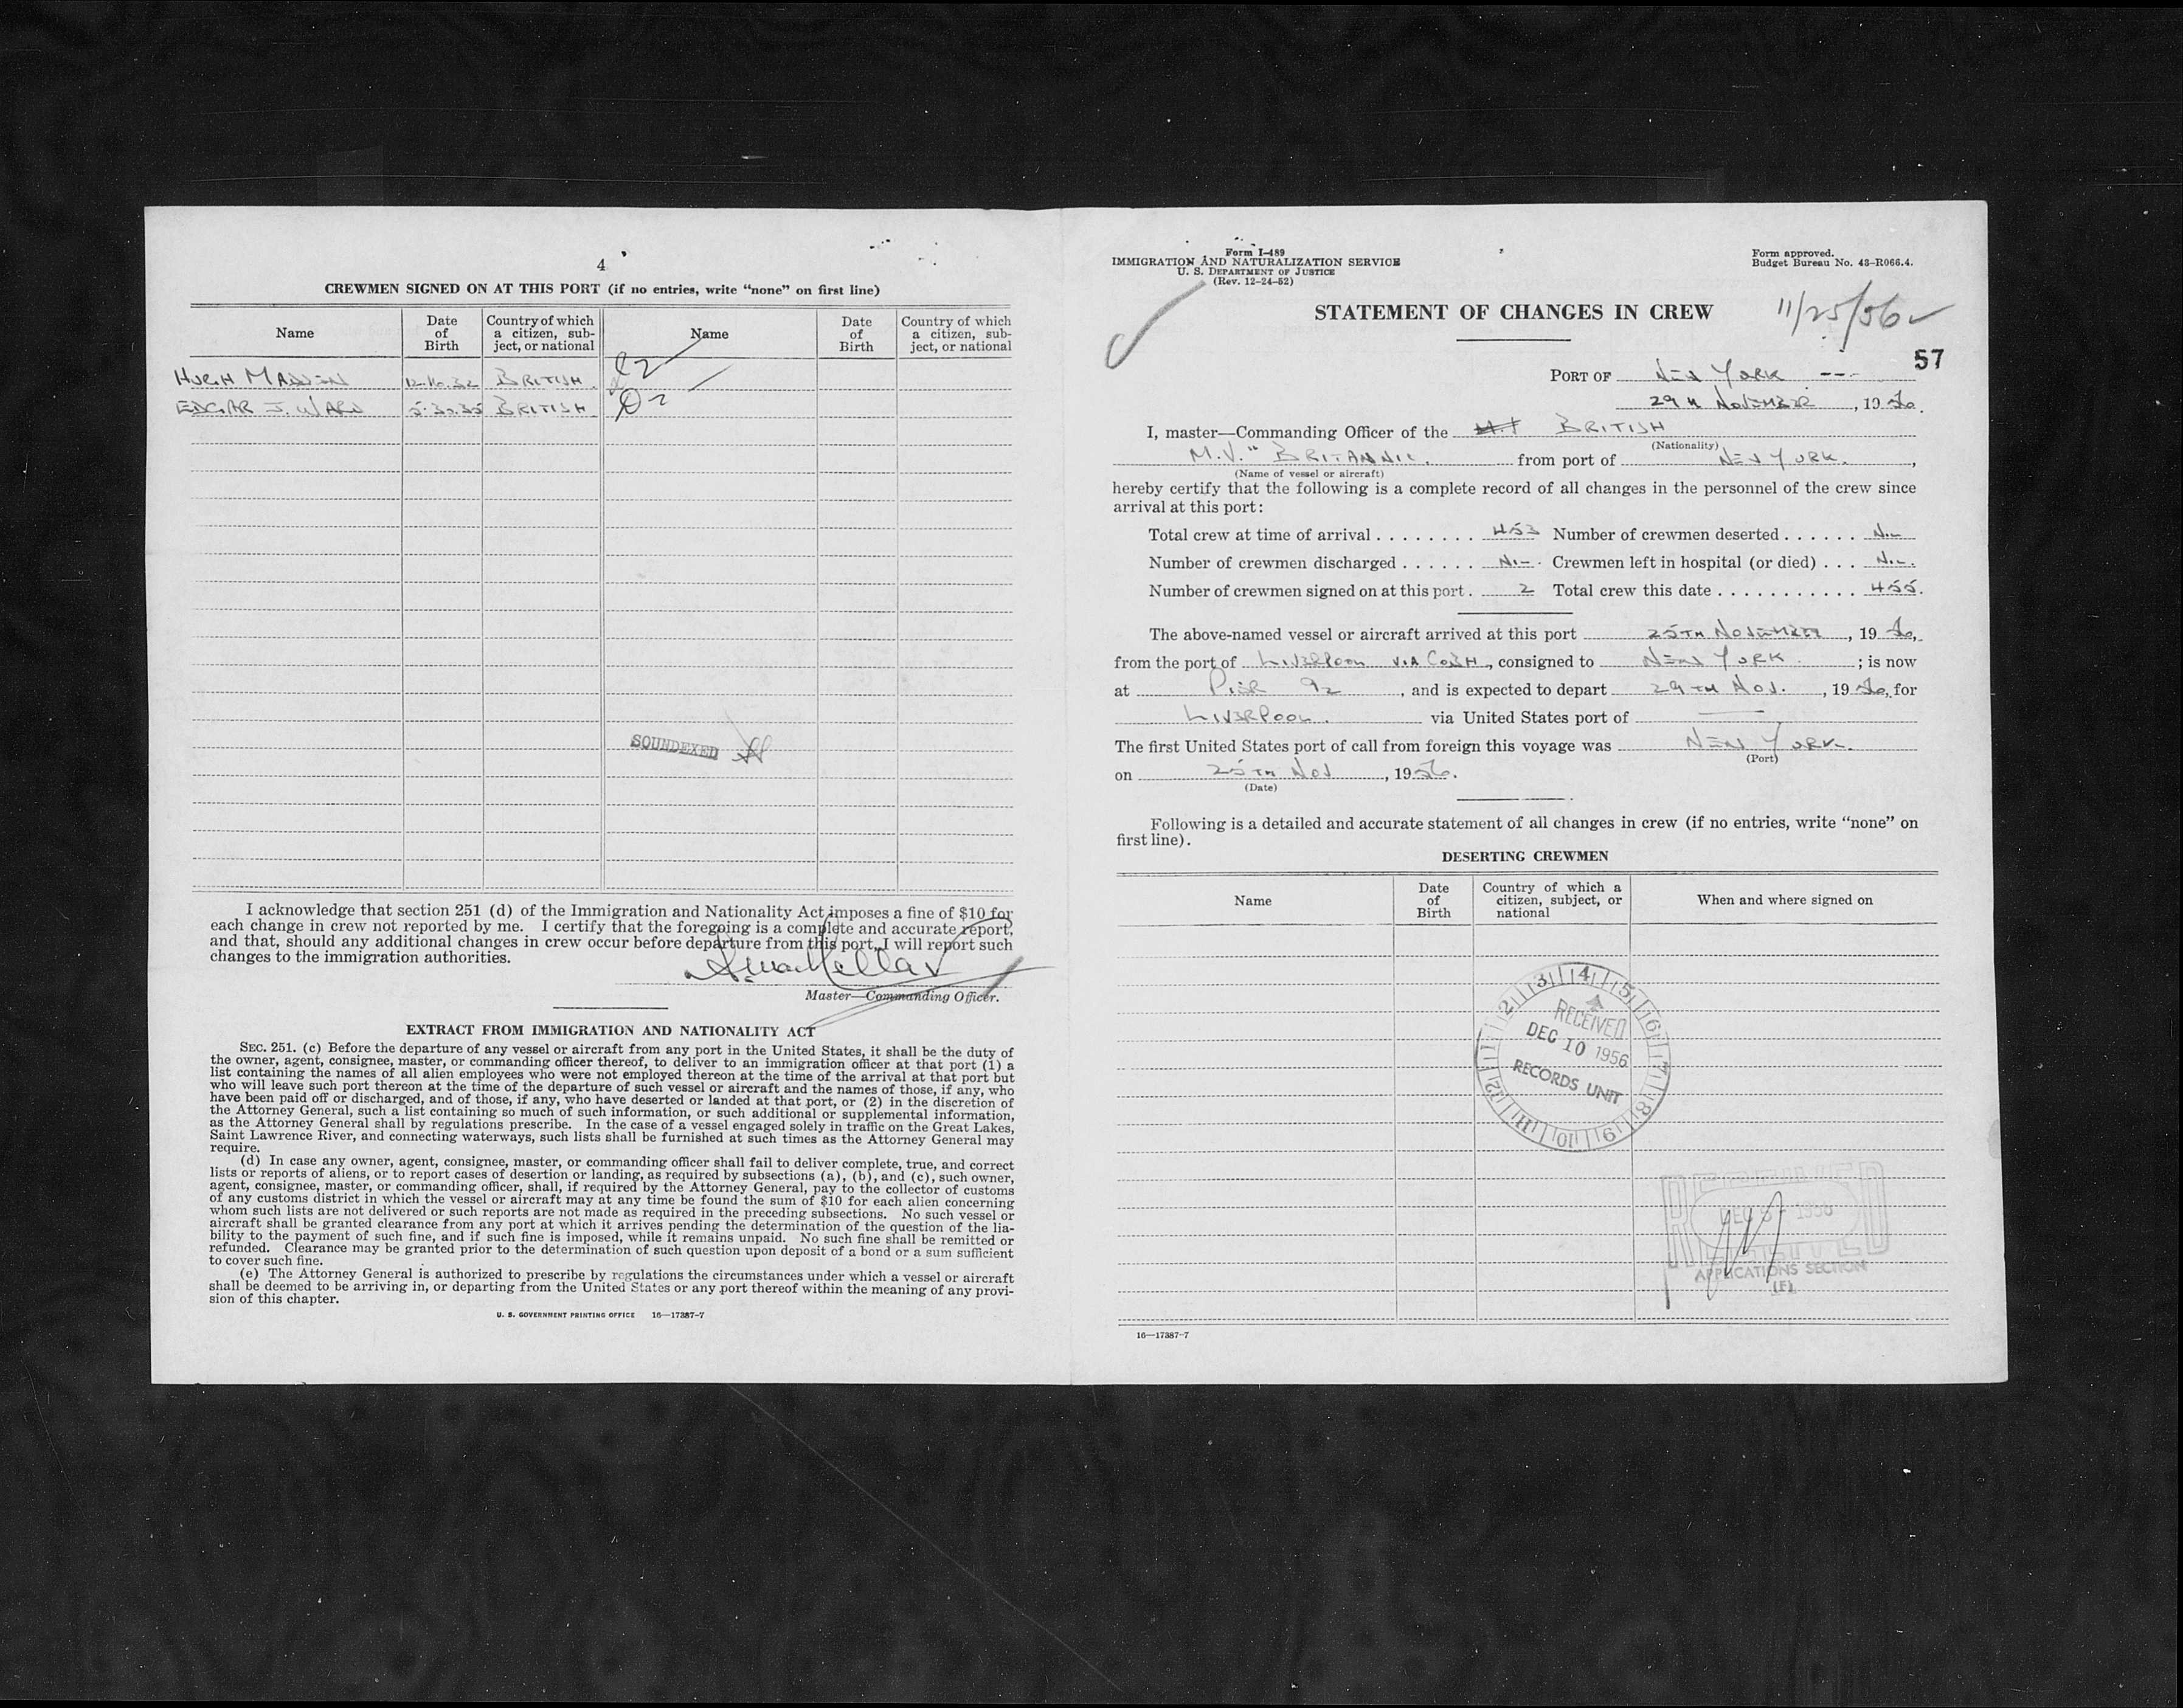 4
CREWMEN SIGNED ON AT THIS PORT (if no entries, write “none” on first line)
Name
Date of Birth
Country of which a citizen, subject, or national
Name
Date of Birth
Country of which a citizen, subject, or national
HUGH BRITISH
EDGAR J. WARD 5.30.35 BRITISH
SOUNDEXED
I acknowledge that section 251 (d) of the Immigration and Nationality Act imposes a fine of $10 for
each change in crew not reported by me. I certify that the foregoing is a complete and accurate report,
and that, should any additional changes in crew occur before departure from this port, I will report such
changes to the immigration authorities.
Master—Commanding Officer.
EXTRACT FROM IMMIGRATION AND NATIONALITY ACT
SEC. 251. (c) Before the departure of any vessel or aircraft from any port in the United States, it shall be the duty of
the owner, agent, consignee, master, or commanding officer thereof, to deliver to an immigration officer at that port (1) a
list containing the names of all alien employees who were not employed thereon at the time of the arrival at that port but
who will leave such port thereon at the time of the departure of such vessel or aircraft and the names of those, if any, who
have been paid off or discharged, and of those, if any, who have deserted or landed at that port, or (2) in the discretion of
the Attorney General, such a list containing so much of such information, or such additional or supplemental information,
as the Attorney General shall by regulations prescribe. In the case of a vessel engaged solely in traffic on the Great Lakes,
Saint Lawrence River, and connecting waterways, such lists shall be furnished at such times as the Attorney General may
require.
(d) In case any owner, agent, consignee, master, or commanding officer shall fail to deliver complete, true, and correct
lists or reports of aliens, or to report cases of desertion or landing, as required by subsections (a), (b), and (c), such owner,
agent, consignee, master, or commanding officer, shall, if required by the Attorney General, pay to the collector of customs
of any customs district in which the vessel or aircraft may at any time be found the sum of $10 for each alien concerning
whom such lists are not delivered or such reports are not made as required in the preceding subsections. No such vessel or
aircraft shall be granted clearance from any port at which it arrives pending the determination of the question of the lia-
bility to the payment of such fine, and if such fine is imposed, while it remains unpaid. No such fine shall be remitted or
refunded. Clearance may be granted prior to the determination of such question upon deposit of a bond or a sum sufficient
to cover such fine.
(e) The Attorney General is authorized to prescribe by regulations the circumstances under which a vessel or aircraft
shall be deemed to be arriving in, or departing from the United States or any port thereof within the meaning of any provi-
sion of this chapter.
U. S. GOVERNMENT PRINTING OFFICE 16—17387-7
Form I-489
IMMIGRATION AND NATURALIZATION SERVICE
U. S. DEPARTMENT OF JUSTICE
(Rev. 12-24-52)
Form approved.
Budget Bureau No. 43-R066.4.
STATEMENT OF CHANGES IN CREW
11/25/56
57
PORT OF NEW YORK
29 NOVEMBER, 1956.
I, master—Commanding Officer of the BRITISH
(Nationality)
M.V. "BRITANNIC. from port of NEW YORK.,
(Name of vessel or aircraft)
hereby certify that the following is a complete record of all changes in the personnel of the crew since
arrival at this port:
Total crew at time of arrival . . . . . . . . 453 Number of crewmen deserted . . . . . . NIL
Number of crewmen discharged . . . . . . NIL. Crewmen left in hospital (or died) . . . NIL.
Number of crewmen signed on at this port . 2 Total crew this date . . . . . . . . . . . 455.
The above-named vessel or aircraft arrived at this port 25TH NOVEMBER, 1956,
from the port of LIVERPOOL VIA COBH, consigned to NEW YORK. ; is now
at PIER 92, and is expected to depart 29TH NOV., 1956, for
LIVERPOOL. via United States port of
The first United States port of call from foreign this voyage was NEW YORK.
(Port)
on 25TH NOV, 1956.
(Date)
Following is a detailed and accurate statement of all changes in crew (if no entries, write “none” on
first line).
DESERTING CREWMEN
Name
Date of Birth
Country of which a citizen, subject, or national
When and where signed on
1 2 3 4 5 6 7 8 9 10 11 12
RECEIVED
DEC 10 1956
RECORDS UNIT
RECEIVED
DEC 1956
APPLICATIONS SECTION
(F)
16—17387-7